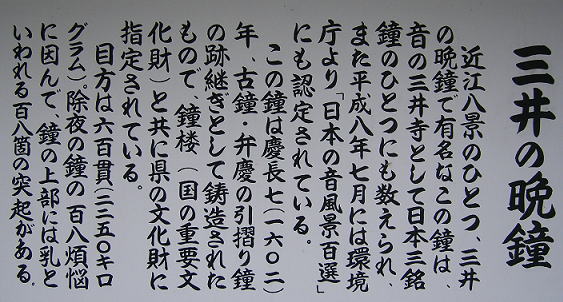 三井の晩鐘
近江八景のひとつ、三井
の晩鐘で有名なこの鐘は、
音の三井寺として日本三銘
鐘のひとつにも数えられ、
また平成八年七月には環境
庁より「日本の音風景百選」
にも認定されている。
この鐘は慶長七(一六〇二)
年、古鐘・弁慶の引摺り鐘
の跡継ぎとして鋳造された
もので、鐘楼(国の重要文
化財)と共に県の文化財に
指定されている。
目方は六百貫(二二五〇キロ
グラム)。除夜の鐘の百八煩悩
に因んで、鐘の上部には乳と
いわれる百八箇の突起がある。